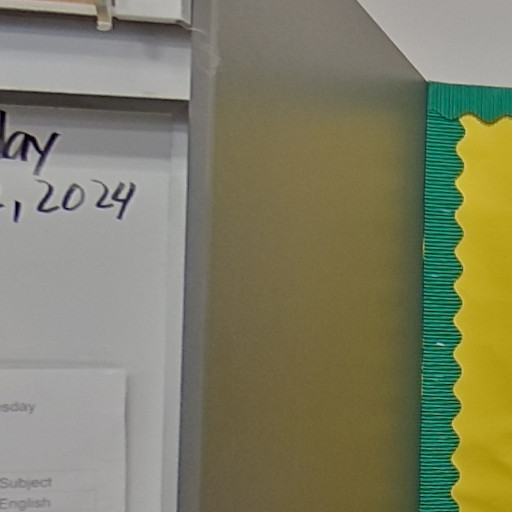 day
, 2024
sday
Subject
English